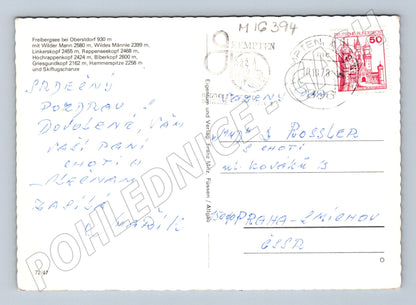 Freibergsee bei Oberstdorf 930 m
mit Wilder Mann 2580 m, Wildes Männle 2399 m,
Linkerskopf 2455 m, Rappenseekopf 2468 m,
Hochrappenkopf 2424 m, Biberkopf 2600 m,
Griesgundkopf 2162 m, Hammerspitze 2258 m
und Skiflugschanze
SRDEČNÝ
POZDRAV Z
DOVOLENÉ, VÁM
VAŠÍ PANÍ
CHOTI A
SLEČNÁM
ZASÍLÁ
72/47
Eigentum und Verlag Franz Jähr, Füssen / Allgäu
M 16394
KEMPTEN
50
VÁŽENÝ
ROSSLER
S CHOTÍ
PRAHA - SMÍCHOV
ČSSR
POHLEDNICE